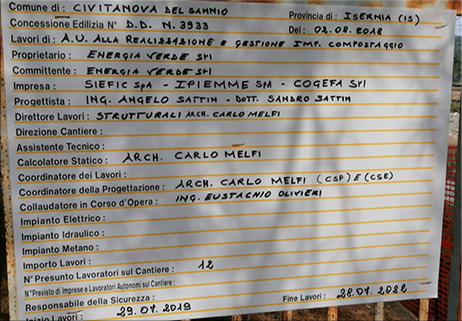 Comune di: CIVITANOVA DEL SANNIO Provincia di: ISERNIA (IS)
Concessione Edilizia N° D.D. N. 3933 Del: 02.08.2018
Lavori di: A.U. ALLA REALIZZAZIONE E GESTIONE IMP. COMPOSTAGGIO
Proprietario: ENERGIA VERDE Srl
Committente: ENERGIA VERDE Srl
Impresa: SIEFIC SpA - IPIEMME SM - COGEFA Srl
Progettista: ING. ANGELO SATTIN - DOTT. SANDRO SATTIN
Direttore Lavori: STRUTTURALI ARCH. CARLO MELFI
Direzione Cantiere:
Assistente Tecnico:
Calcolatore Statico: ARCH. CARLO MELFI
Coordinatore dei Lavori:
Coordinatore della Progettazione: ARCH. CARLO MELFI (CSP) E (CSE)
Collaudatore in Corso d'Opera: ING. EUSTACHIO OLIVIERI
Impianto Elettrico:
Impianto Idraulico:
Impianto Metano:
Importo Lavori:
N° Presunto Lavoratori sul Cantiere: 12
N° Previsto di Imprese e Lavoratori Autonomi sul Cantiere:
Responsabile della Sicurezza:
Inizio Lavori: 29.07.2019 Fine Lavori: 28.07.2022